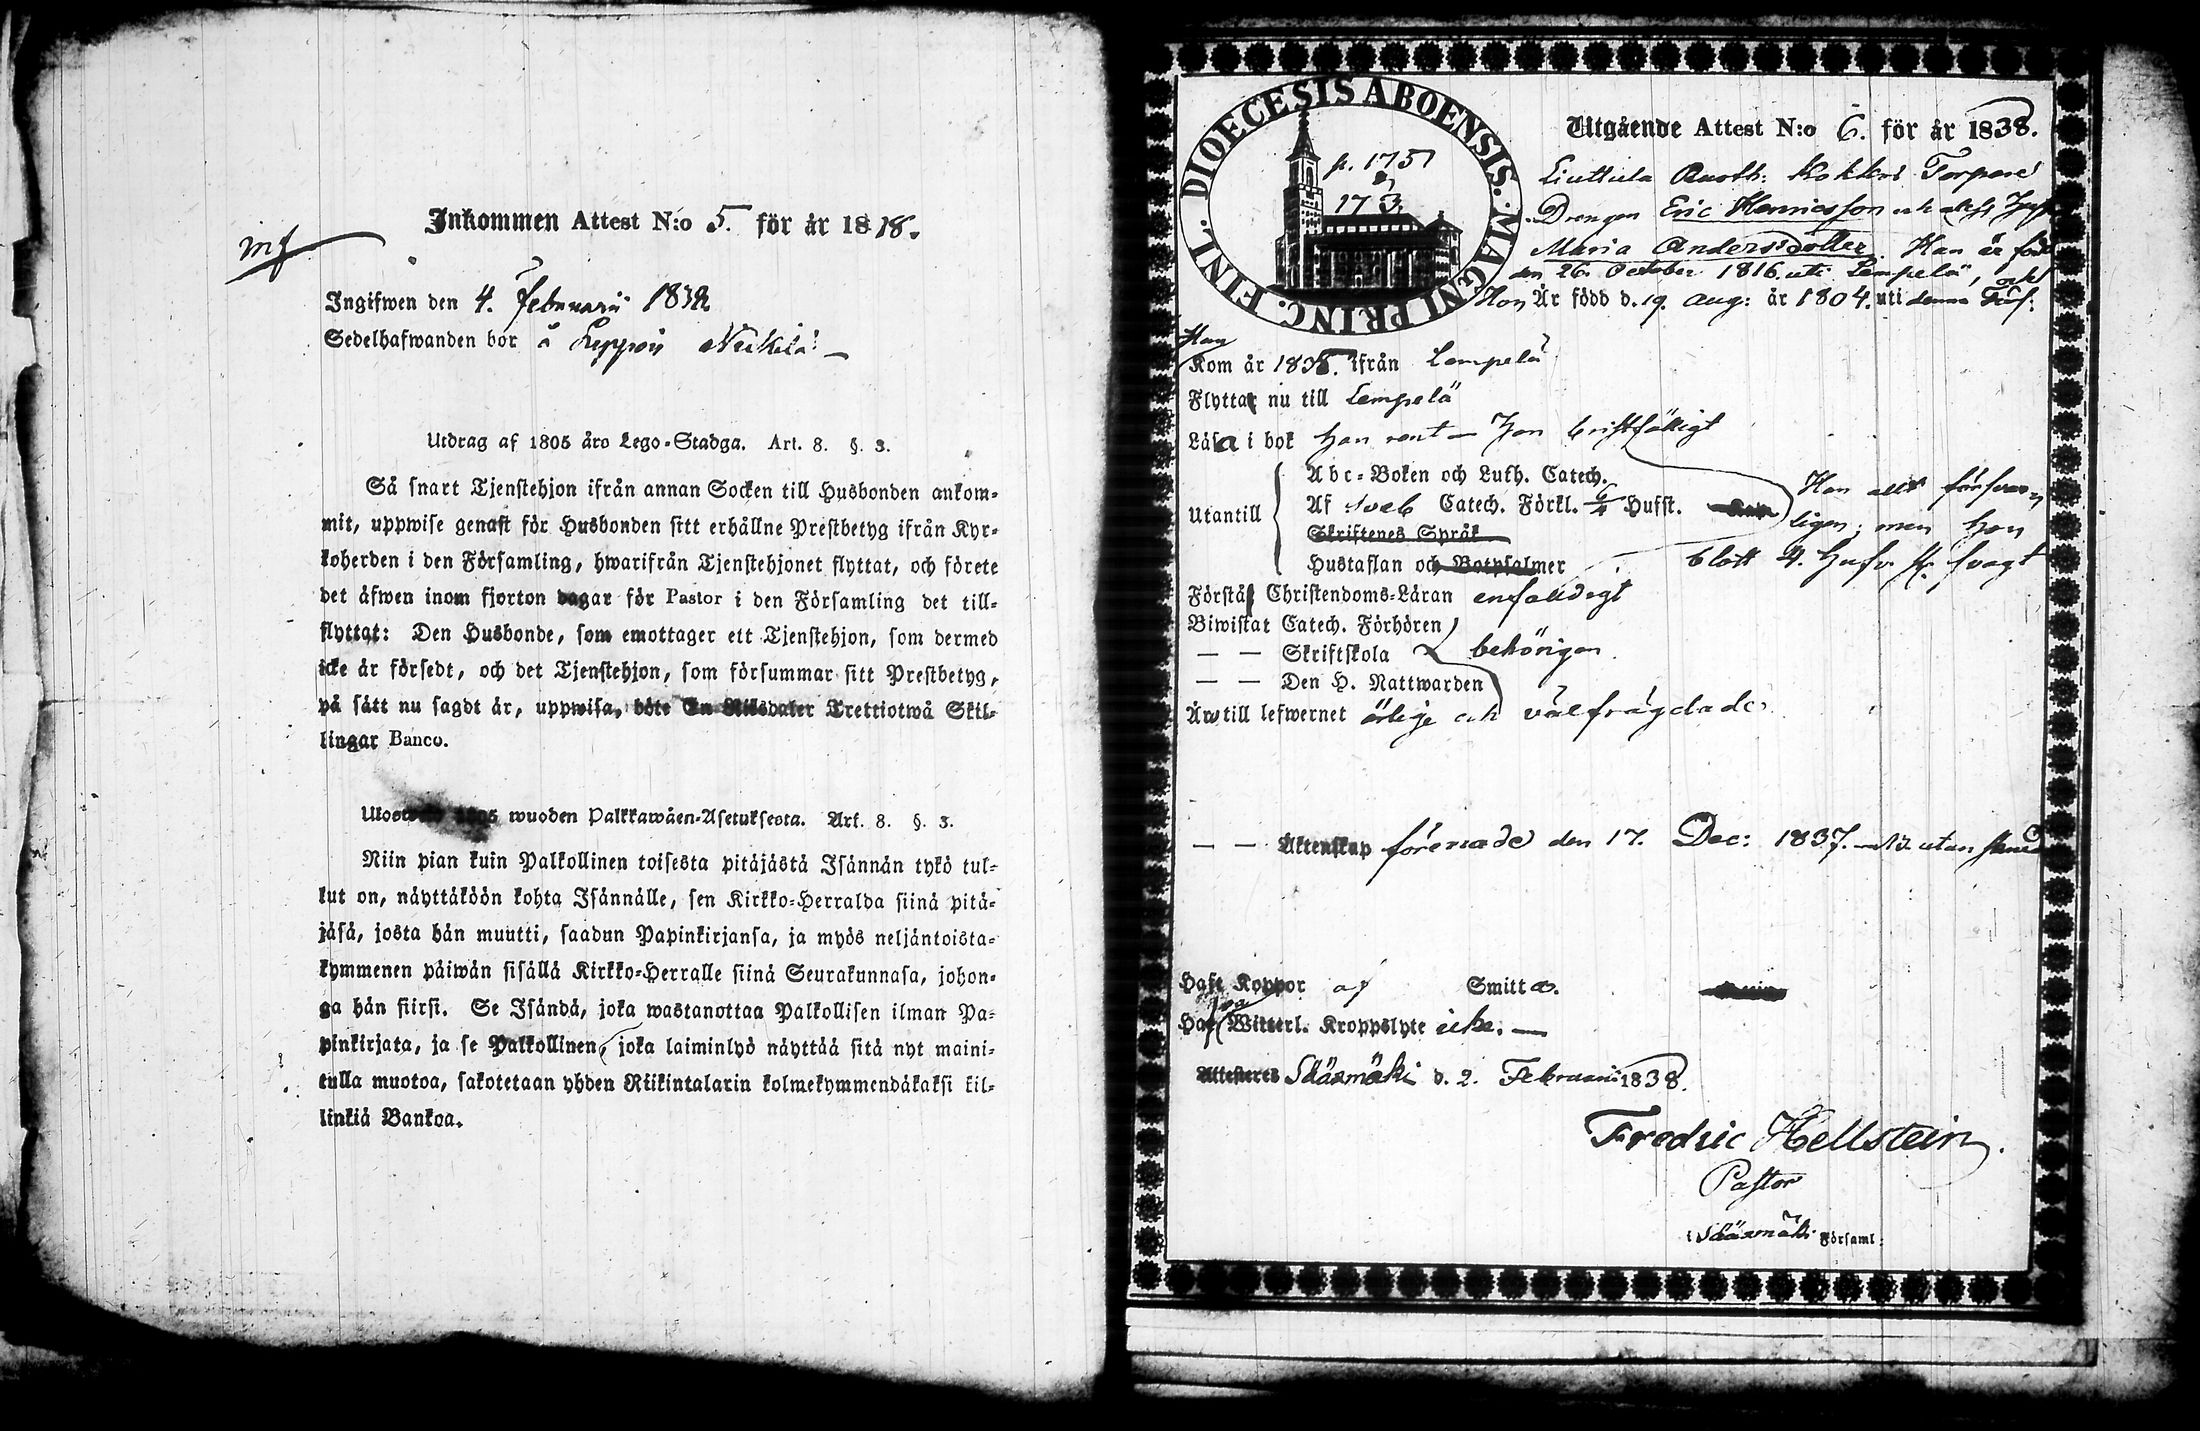 Inkommen Attest N:o 5. för år 1818.
inf
Ingifwen den 4. Februarii 1838
Sedelhafwanden bor å Leppois Neikilä
Utdrag af 1805 åro Lego-Stadga. Art. 8. §. 3.
Så snart Tjenstehjon ifrån annan Socken till Husbonden ankom-
mit, uppwise genast för Husbonden sitt erhållne Prestbetyg ifrån Kyr-
koherden i den Församling, hwarifrån Tjenstehjonet flyttat, och förete
det äfwen inom fjorton dagar för Pastor i den Församling det till-
flyttat: Den Husbonde, som emottager ett Tjenstehjon, som dermed
icke är försedt, och det Tjenstehjon, som försummar sitt Prestbetyg,
på sätt nu sagdt är, uppwisa, böte En Riksdaler Trettiotwå Skil-
lingar Banco.
1805 wuoden Palkkawäen-Asetuksesta. Art. 8. §. 3.
Niin pian kuin Palkollinen toisesta pitäjästä Isännän tykö tul-
lut on, näyttäköön kohta Isännälle, sen Kirkko-Herralda siinä pitä-
jäsä, josta hän muutti, saadun Papinkirjansa, ja myös neljäntoista-
kymmenen päiwän sisällä Kirkko-Herralle siinä Seurakunnasa, johon-
ga hän siirsi. Se Isändä, joka wastanottaa Palkollisen ilman Pa-
pinkirjata, ja se Palkollinen, joka laiminlyö näyttää sitä nyt maini-
tulla muotoa, sakotetaan yhden Riikintalarin kolmekymmendäkaksi kil-
linkiä Bankoa.
DIOECESIS ABOENSIS. MAGNI PRINC. FINL.
p. 175
173
Utgående Attest N:o 6. för år 1838.
Liuttula Rusth: Kokkos Torpare
Drengen Eric Henricsson och dess Hust
Maria Andersdotter. Han är född
den 26. October 1816 uti Lempelä, och
Hon Är född d. 19. Aug: år 1804. uti denna Förs:
Han
Kom år 1835. ifrån Lempelä
Flytta nu till Lempelä
Läsa i bok han rent – Hon bristfälligt
Abc-Boken och Luth. Catech.
Utantill
Af Sveb Catech. Förkl. Hufst.
Skriftenes Språk
Hustaflan och Botpsalmer
Han allt försvar
ligen; men hon
blott 4. Hufv. st. svagt
Förstå Christendoms-Läran enfaldigt
Biwistat Catech. Förhören
— — Skriftskola behörigen
— — Den H. Nattwarden
Äro till lefwernet ärlige och välfrägdade
— — Äktenskap förenade den 17. Dec: 1837. utan
Haft Koppor af Smitta.
Ha Witterl. Kroppslyte icke. —
Attesteres Sääxmäki d. 2. Februari 1838.
Fredric Hellstein.
Pastor
i Sääxmäki Församl: